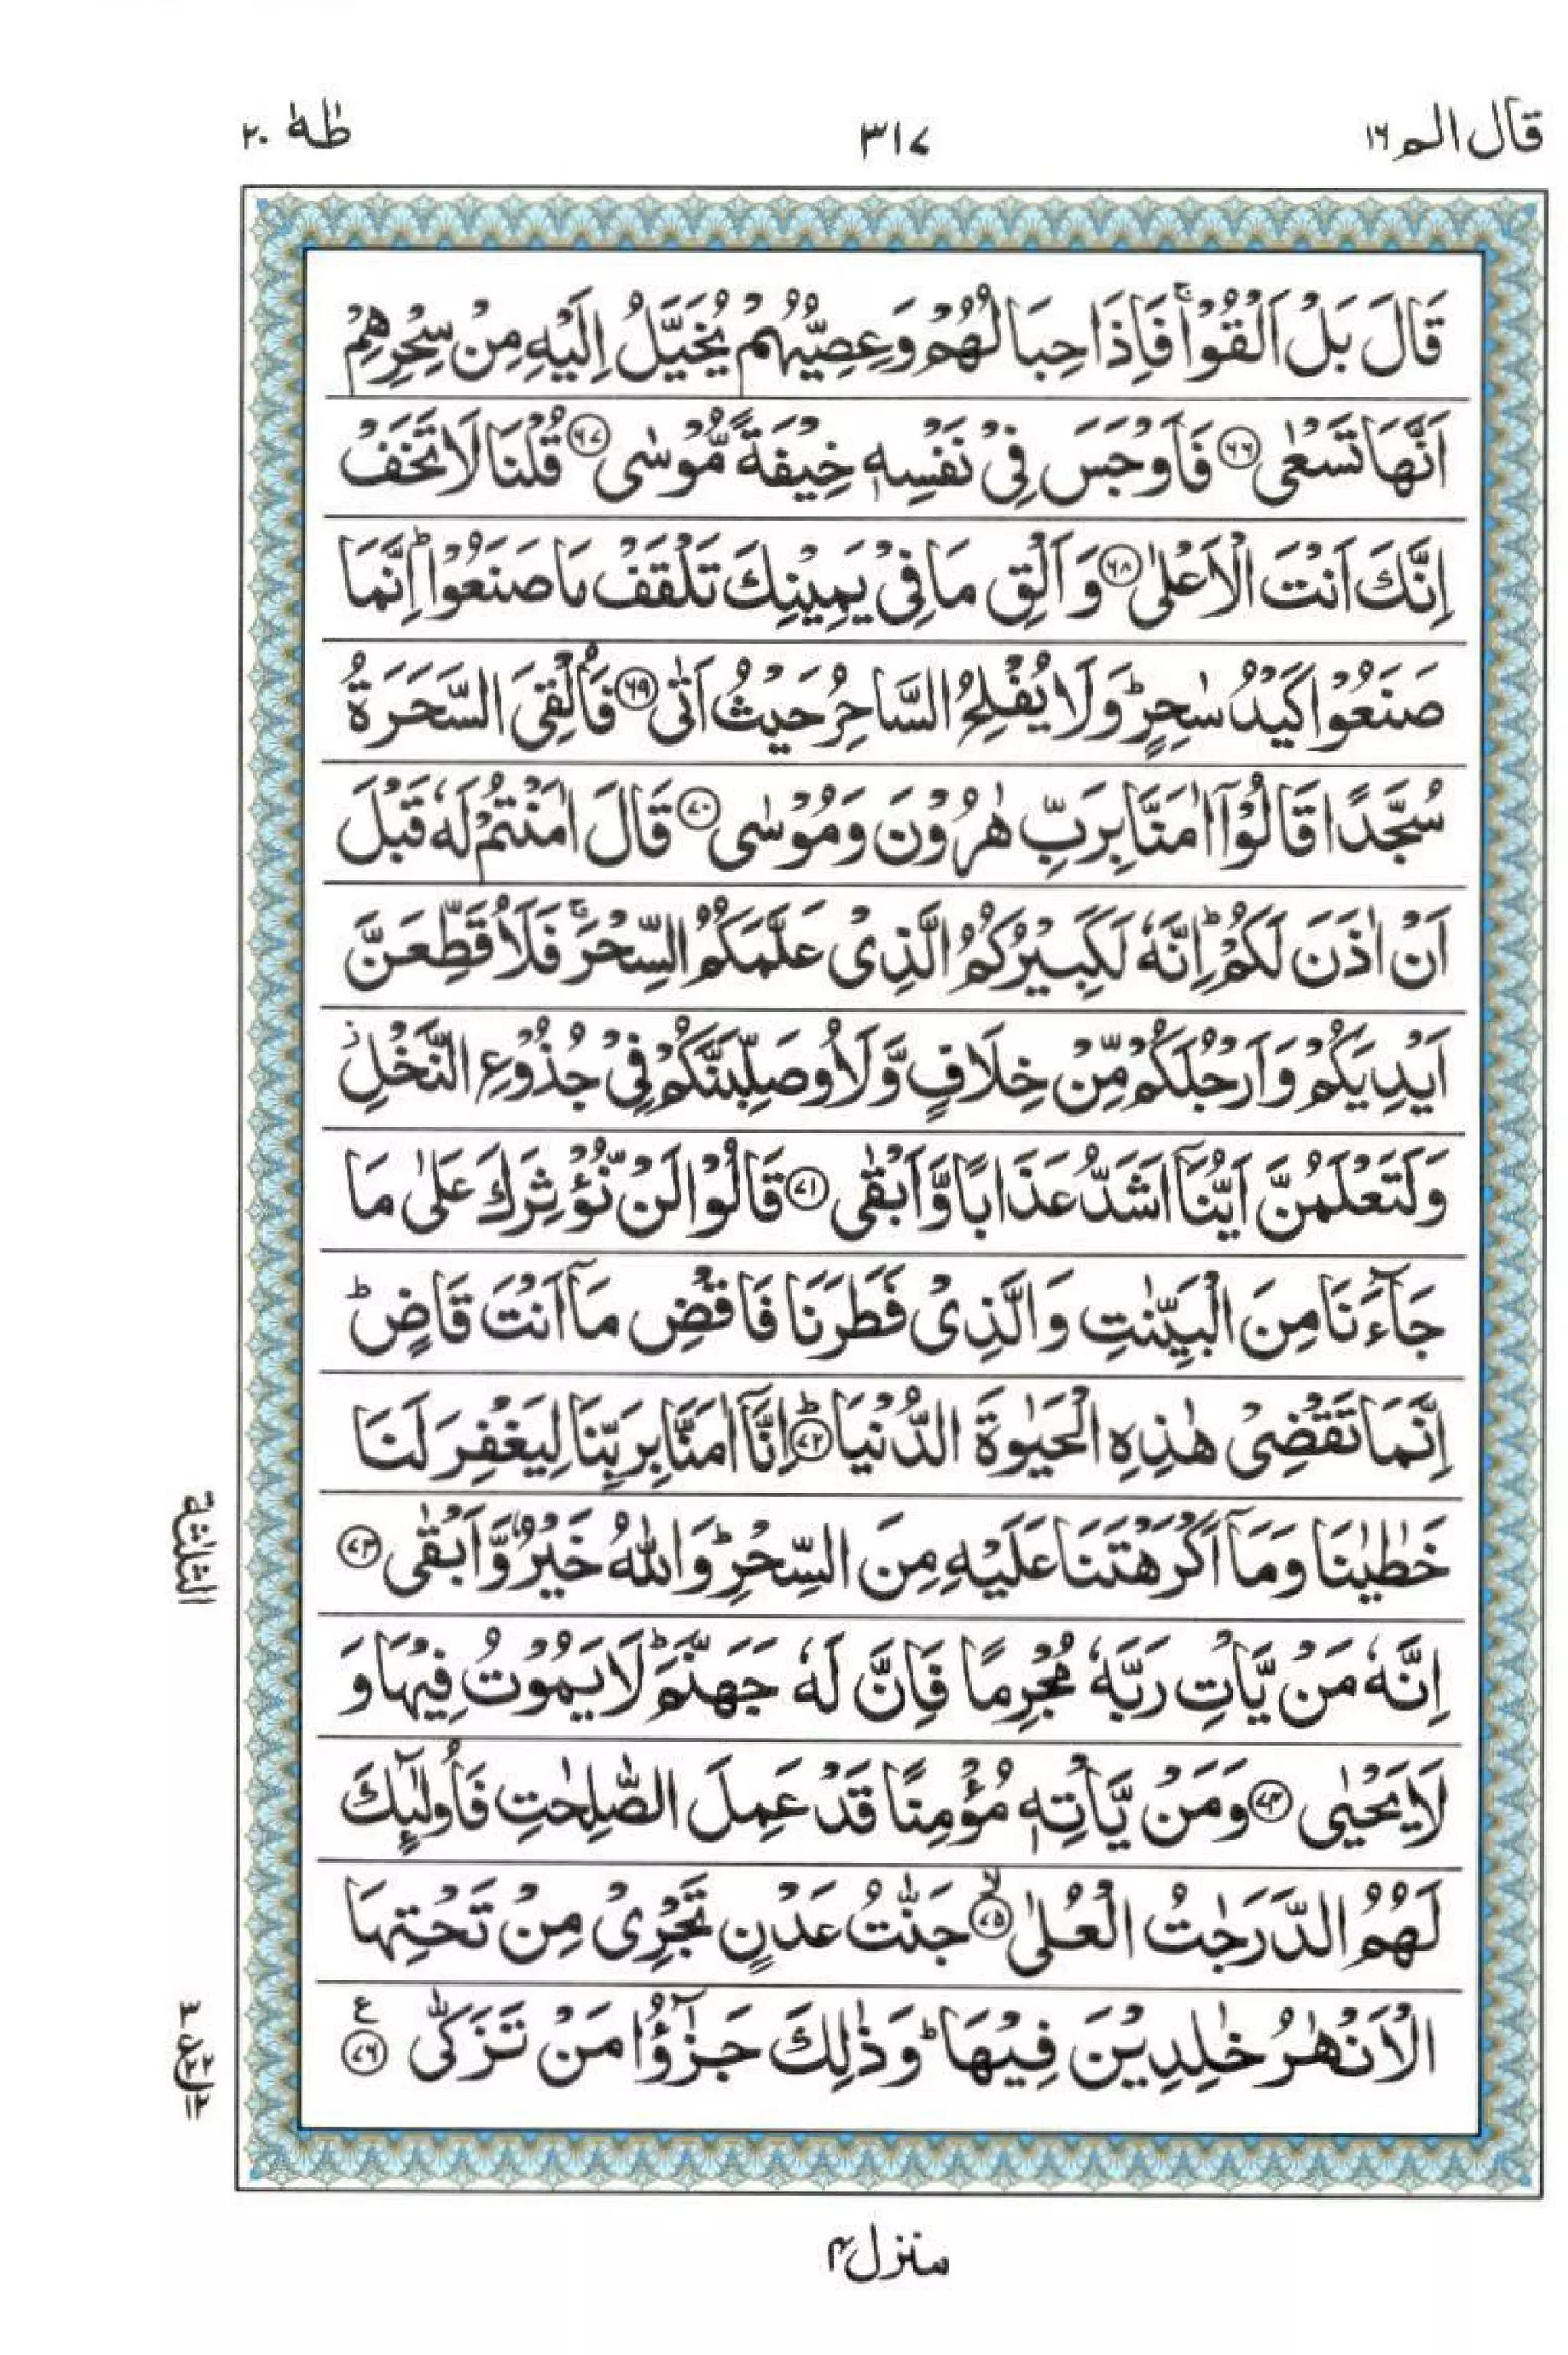 قال الم ۱۶
۳۱۷
طٰهٰ ۲۰
قَالَ بَلْ اَلْقُوْا ۚ فَاِذَا حِبَالُهُمْ وَعِصِيُّهُمْ يُخَيَّلُ اِلَيْهِ مِنْ سِحْرِهِمْ
اَنَّهَا تَسْعٰى ۶۶ فَاَوْجَسَ فِيْ نَفْسِهٖ خِيْفَةً مُّوْسٰى ۶۷ قُلْنَا لَا تَخَفْ
اِنَّكَ اَنْتَ الْاَعْلٰى ۶۸ وَاَلْقِ مَا فِيْ يَمِيْنِكَ تَلْقَفْ مَا صَنَعُوْا ؕ اِنَّمَا
صَنَعُوْا كَيْدُ سٰحِرٍ ؕ وَلَا يُفْلِحُ السَّاحِرُ حَيْثُ اَتٰى ۶۹ فَاُلْقِيَ السَّحَرَةُ
سُجَّدًا قَالُوْٓا اٰمَنَّا بِرَبِّ هٰرُوْنَ وَمُوْسٰى ۷۰ قَالَ اٰمَنْتُمْ لَهٗ قَبْلَ
اَنْ اٰذَنَ لَكُمْ ؕ اِنَّهٗ لَكَبِيْرُكُمُ الَّذِيْ عَلَّمَكُمُ السِّحْرَ ۚ فَلَاُقَطِّعَنَّ
اَيْدِيَكُمْ وَاَرْجُلَكُمْ مِّنْ خِلَافٍ وَّلَاُوصَلِّبَنَّكُمْ فِيْ جُذُوْعِ النَّخْلِ ؗ
وَلَتَعْلَمُنَّ اَيُّنَآ اَشَدُّ عَذَابًا وَّاَبْقٰى ۷۱ قَالُوْا لَنْ نُّؤْثِرَكَ عَلٰى مَا
جَآءَنَا مِنَ الْبَيِّنٰتِ وَالَّذِيْ فَطَرَنَا فَاقْضِ مَآ اَنْتَ قَاضٍ ؕ
اِنَّمَا تَقْضِيْ هٰذِهِ الْحَيٰوةَ الدُّنْيَا ؕ ۷۲ اِنَّآ اٰمَنَّا بِرَبِّنَا لِيَغْفِرَ لَنَا
خَطٰيٰنَا وَمَآ اَكْرَهْتَنَا عَلَيْهِ مِنَ السِّحْرِ ؕ وَاللّٰهُ خَيْرٌ وَّاَبْقٰى ۷۳
اِنَّهٗ مَنْ يَّاْتِ رَبَّهٗ مُجْرِمًا فَاِنَّ لَهٗ جَهَنَّمَ ؕ لَا يَمُوْتُ فِيْهَا وَ
لَا يَحْيٰى ۷۴ وَمَنْ يَّاْتِهٖ مُؤْمِنًا قَدْ عَمِلَ الصّٰلِحٰتِ فَاُولٰٓئِكَ
لَهُمُ الدَّرَجٰتُ الْعُلٰى ۙ ۷۵ جَنّٰتُ عَدْنٍ تَجْرِيْ مِنْ تَحْتِهَا
الْاَنْهٰرُ خٰلِدِيْنَ فِيْهَا ؕ وَذٰلِكَ جَزٰٓؤُا مَنْ تَزَكّٰى ۷۶ ع
الثلثة
۳ ع ۲۲ ۱۲
منزل ۴